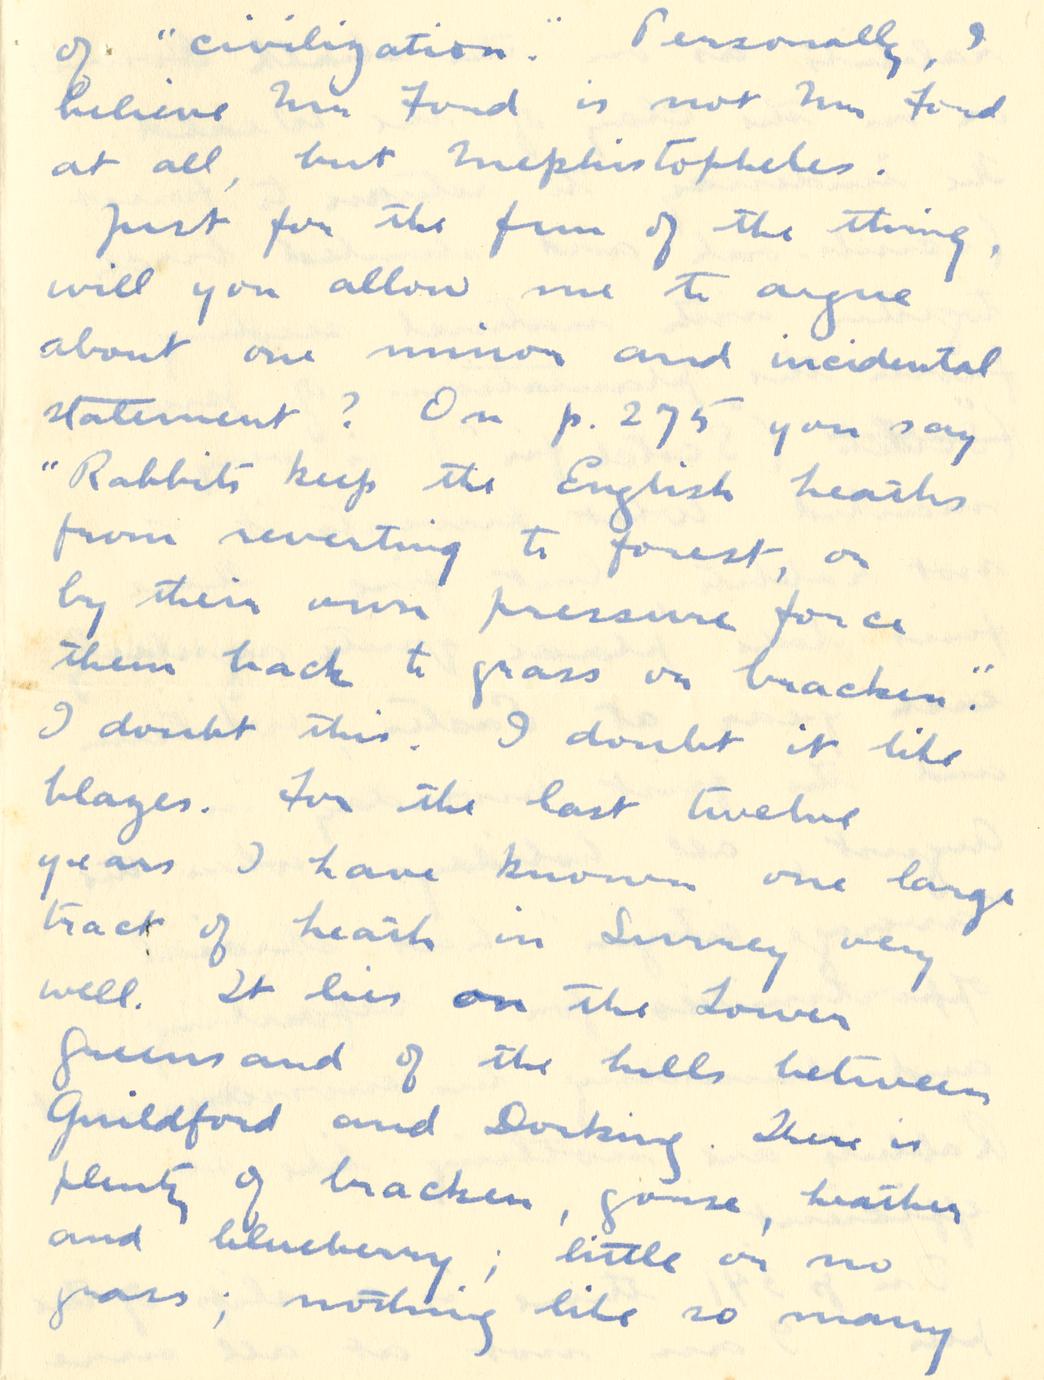 of "civilization." Personally, I
believe Mr Ford is not Mr Ford
at all, but Mephistopheles.
Just for the fun of the thing,
will you allow me to argue
about one minor and incidental
statement? On p. 275 you say
"Rabbits keep the English heaths
from reverting to forest, or
by their own pressure force
them back to grass or bracken."
I doubt this. I doubt it like
blazes. For the last twelve
years I have known one large
tract of heath in Surrey very
well. It lies on the Lower
Greensand of the hills between
Guildford and Dorking. There is
plenty of bracken, gorse, heather
and blueberry; little or no
grass; nothing like so many